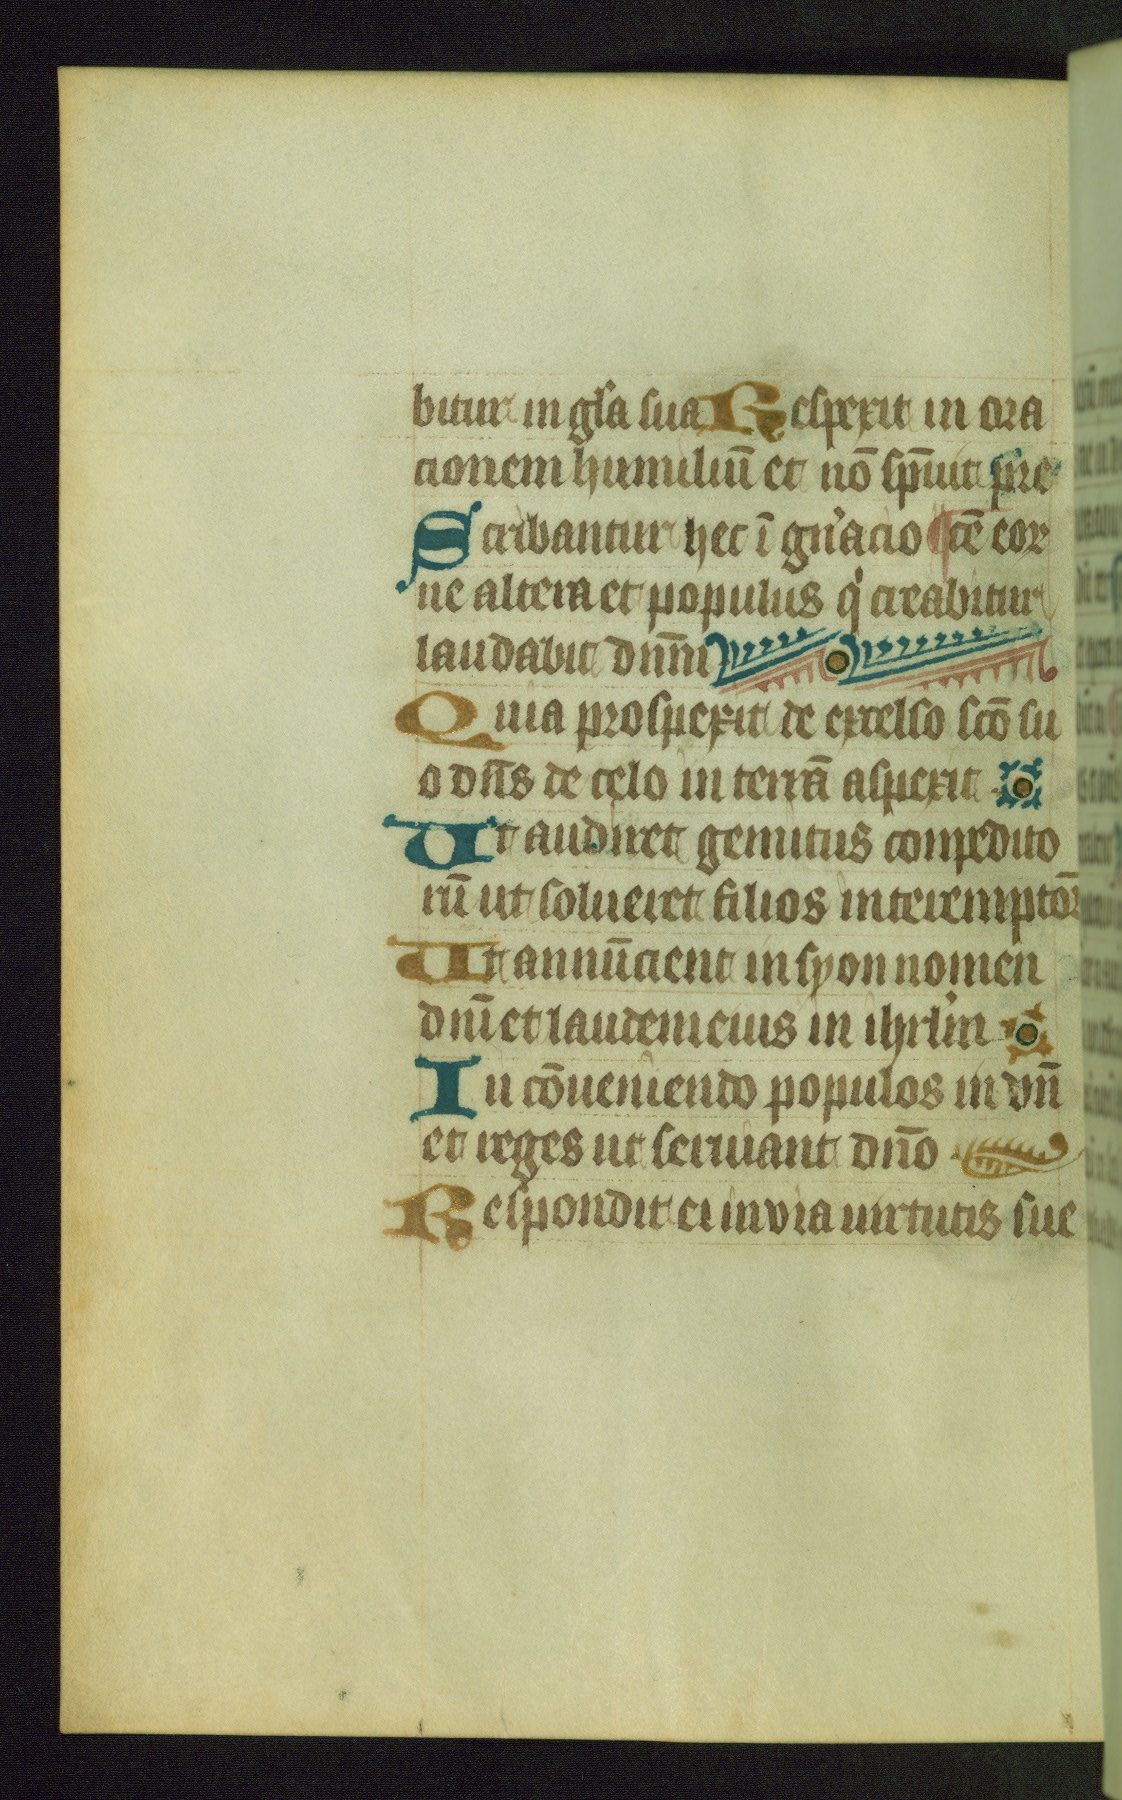 bitur in gl̄a sua Respexit in ora
cionem humiliū et nō sp̄uit pre
Scribantur hec ī gn̓acio ¶ cē eor
ne altera et populus q̓ creabitur
laudabit dn̄m
Quia prospexit de excelso scō su
o dn̄s de celo in terrā aspexit
Ut audiret gemitus conpedito
rū ut solueret filios interemptor̄
Ut annūcient in syon nomen
dn̄i et laudem eius in ihrl̓m
In cōueniendo populos in vn̄
et reges ut seruiant dn̄o
Respondit ei in via uirtutis sue